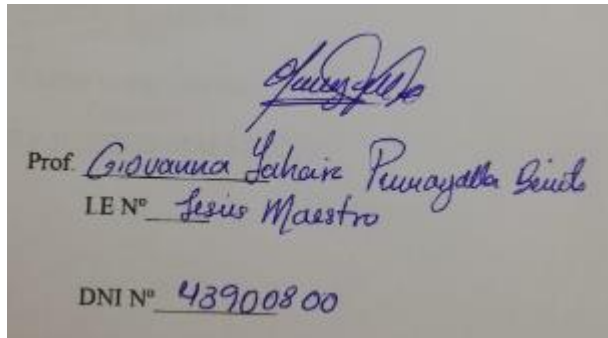 Prof. Giovanna Yahaira Pumayalla Benito
I.E Nº Jesús Maestro
DNI Nº 43900800